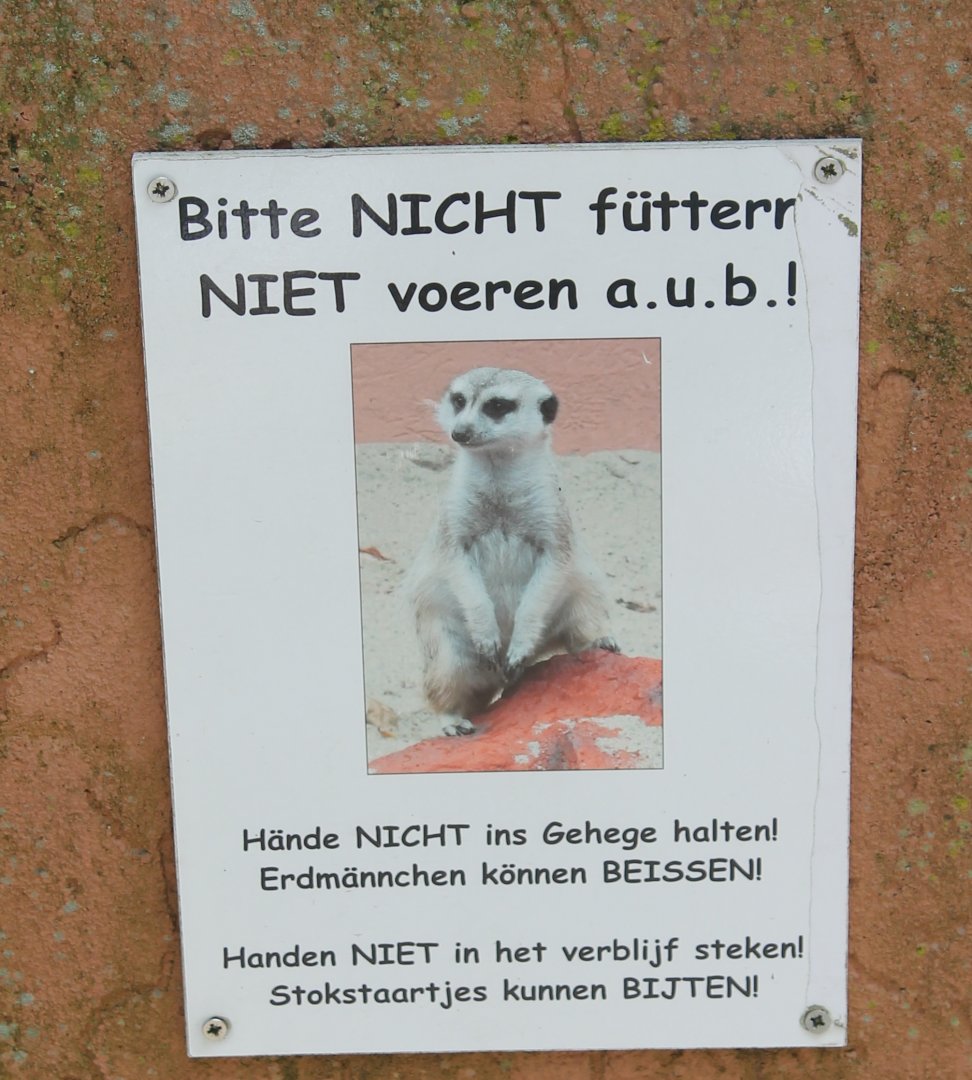 Bitte NICHT fütterr
NIET voeren a.u.b.!
Hände NICHT ins Gehege halten!
Erdmännchen können BEISSEN!
Handen NIET in het verblijf steken!
Stokstaartjes kunnen BIJTEN!